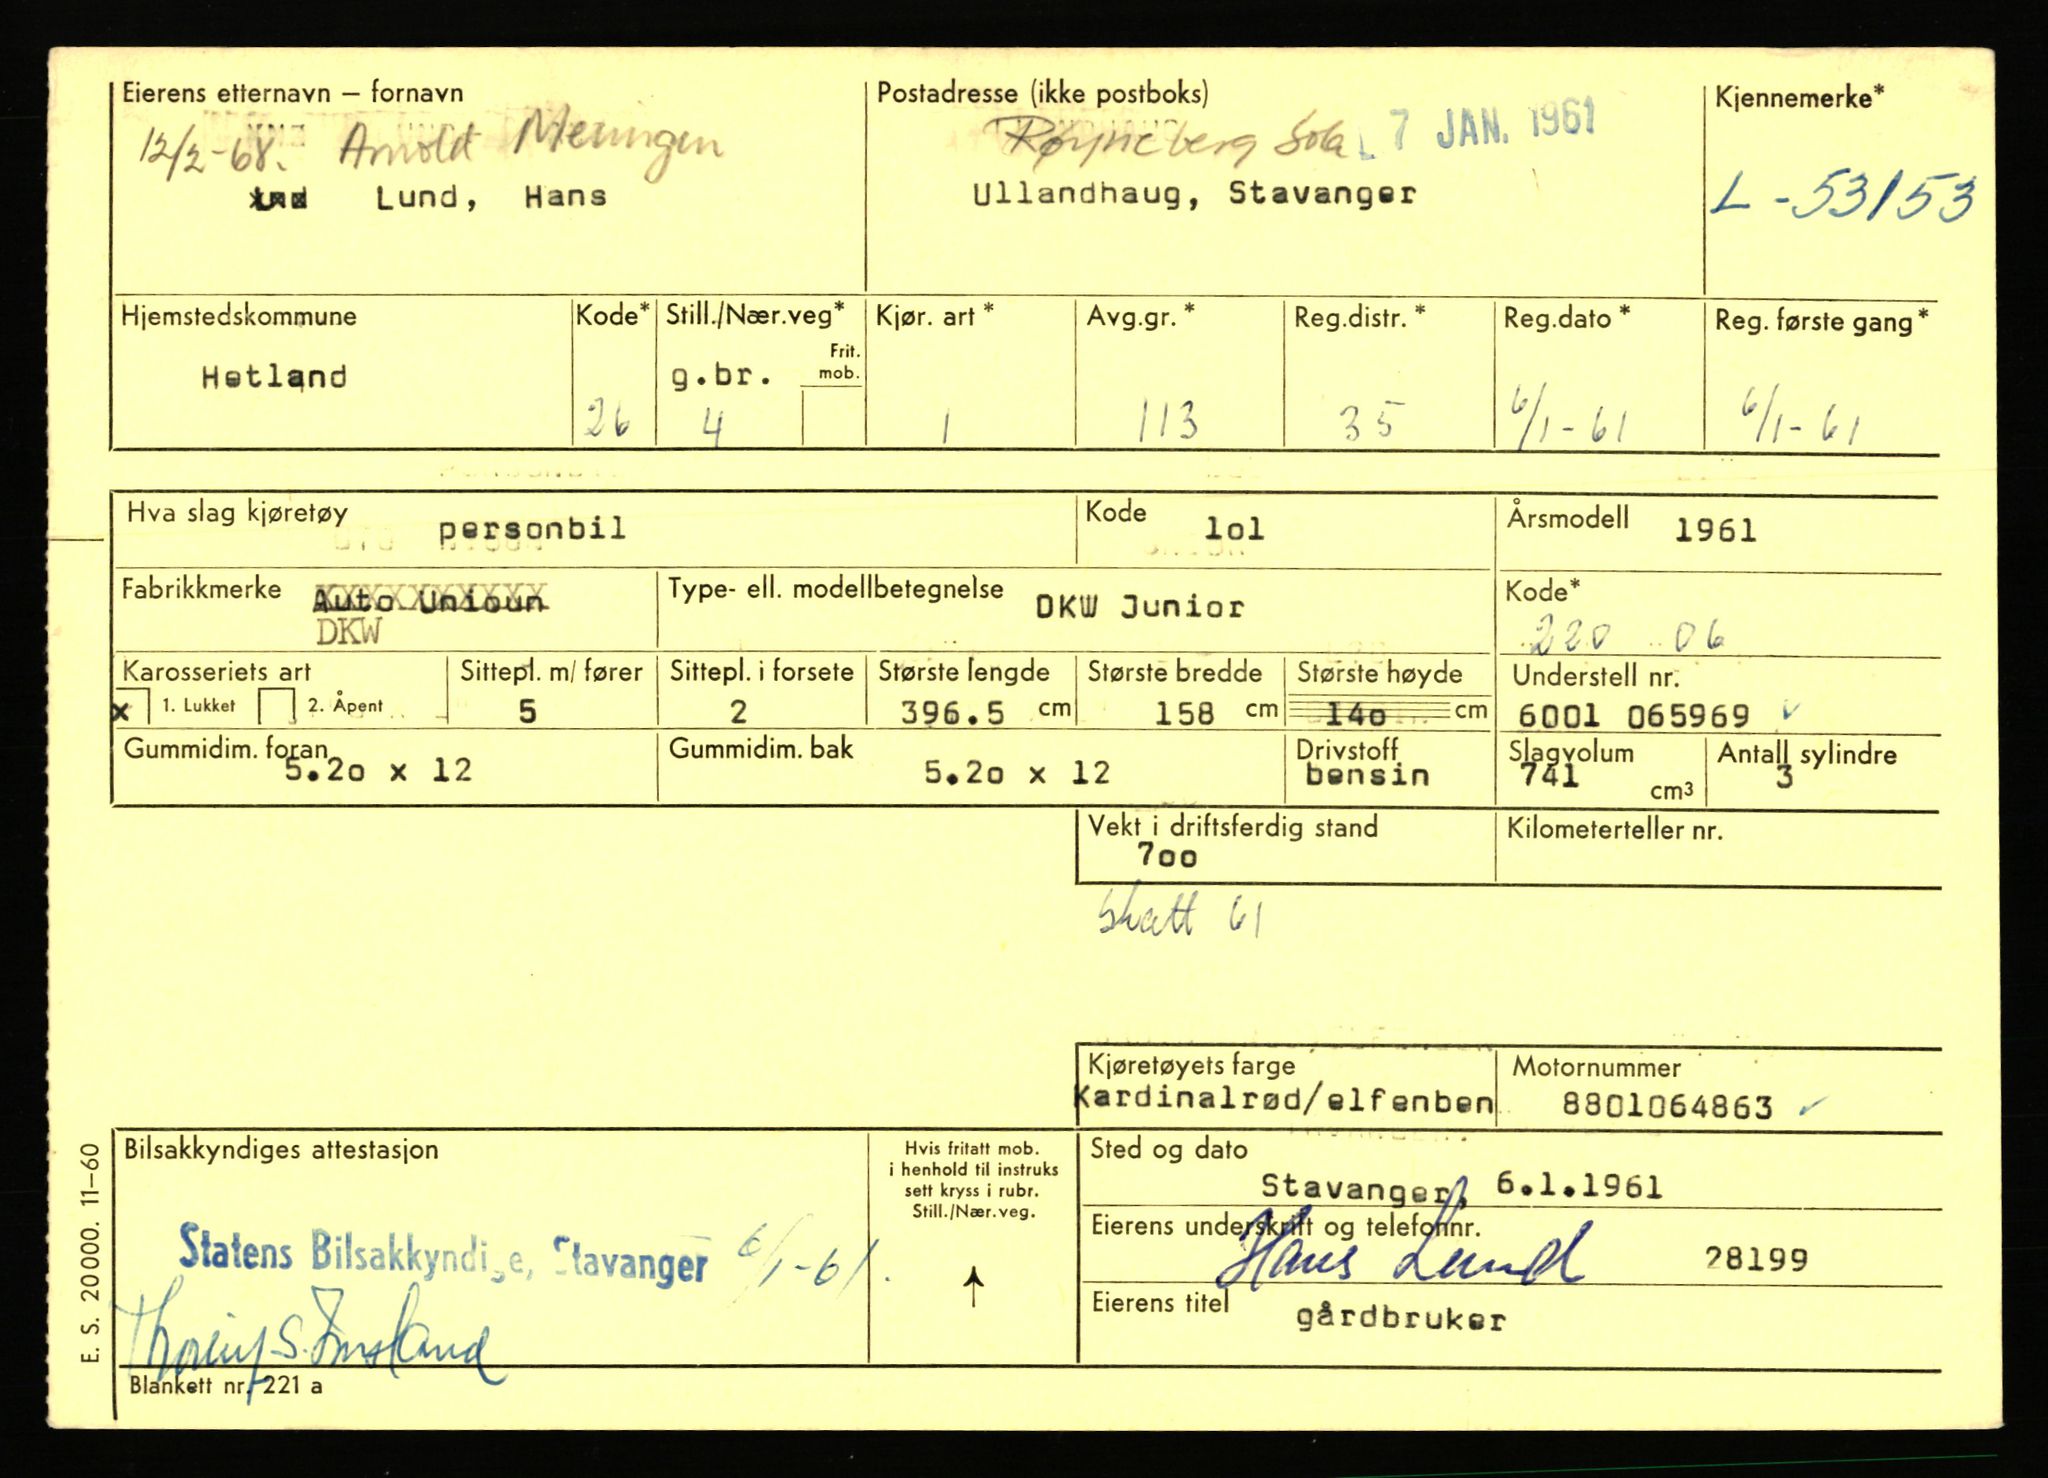 Eierens etternavn – fornavn
Postadresse (ikke postboks)
Kjennemerke*
12/2-68. Arnold Meningen
Røyneberg Sola
7 JAN. 1961
Lund, Hans
Ullandhaug, Stavanger
L-53153
Hjemstedskommune
Kode*
Still./Nær.veg*
Kjør. art *
Avg.gr. *
Reg.distr. *
Reg.dato *
Reg. første gang*
Frit. mob.
Hetland
26
g.br.
4
1
113
35
6/1-61
6/1-61
Hva slag kjøretøy personbil
Kode lol
Årsmodell 1961
Fabrikkmerke Auto Unioun
DKW
Type- ell. modellbetegnelse DKW Junior
Kode*
220 06
Karosseriets art
x 1. Lukket 2. Åpent
Sittepl. m/ fører
5
Sittepl. i forsete
2
Største lengde
396.5 cm
Største bredde
158 cm
Største høyde
14o cm
Understell nr.
6001 065969 ✓
Gummidim. foran
5.2o x 12
Gummidim. bak
5.2o x 12
Drivstoff
bensin
Slagvolum
741 cm³
Antall sylindre
3
Vekt i driftsferdig stand
7oo
Kilometerteller nr.
skatt 61
Kjøretøyets farge
Kardinalrød/elfenben
Motornummer
8801064863 ✓
Bilsakkyndiges attestasjon
Hvis fritatt mob.
i henhold til instruks
sett kryss i rubr.
Still./Nær.veg.
Sted og dato
Stavanger, 6.1.1961
Eierens underskrift og telefonnr.
Hans Lund 28199
Statens Bilsakkyndige, Stavanger 6/1-61.
Eierens titel gårdbruker
Blankett nr. 221 a
E. S. 20000. 11–60